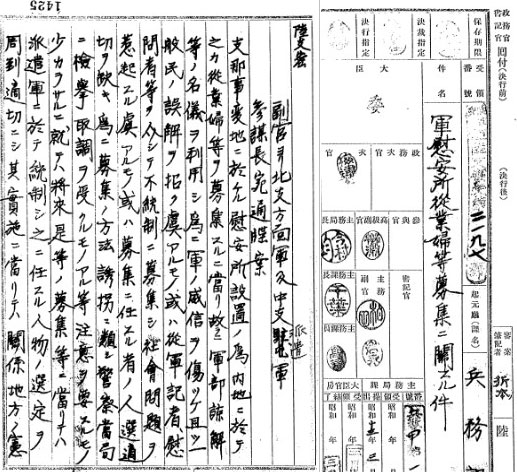 政務官
書記官
回付(決行前)
(決行後)
審案
筆記者
折本
陸
保存期限
受領
番號
二一九七
起元廳(課名)
兵務
決裁指定
決行指定
件名
軍慰安所從業婦等募集ニ關スル件
大臣
委
政務次官
次官
參與官
高級副官
主務局長
書記官
主務副官
主務課長
主務課
大臣官房
昭和 年
昭和 年
昭和 年
1425
陸支密
副官ヨリ北支方面軍及中支派遣軍
參謀長宛通牒案
支那事變地ニ於ケル慰安所設置ノ為内地ニ於テ
之カ從業婦等ヲ募集スルニ當リ故ラニ軍部諒解
等ノ名儀ヲ利用シ為ニ軍ノ威信ヲ傷ツケ且ツ一
般民ノ誤解ヲ招ク虞アルモノ或ハ從軍記者慰
問者等ヲ介シテ不統制ニ募集シ社會問題ヲ
惹起スル虞アルモノ或ハ募集ニ任スル者ノ人選適
切ヲ欠キ為ニ募集ノ方法誘拐ニ類シ警察當局
ニ檢擧取調ヲ受クルモノアル等注意ヲ要スルモノ
少カラサルニ就テハ將來是等ノ募集等ニ當リテハ
派遣軍ニ於テ統制シ之ニ任スル人物ノ選定ヲ
周到適切ニシ其實施ニ當リテハ關係地方ノ憲